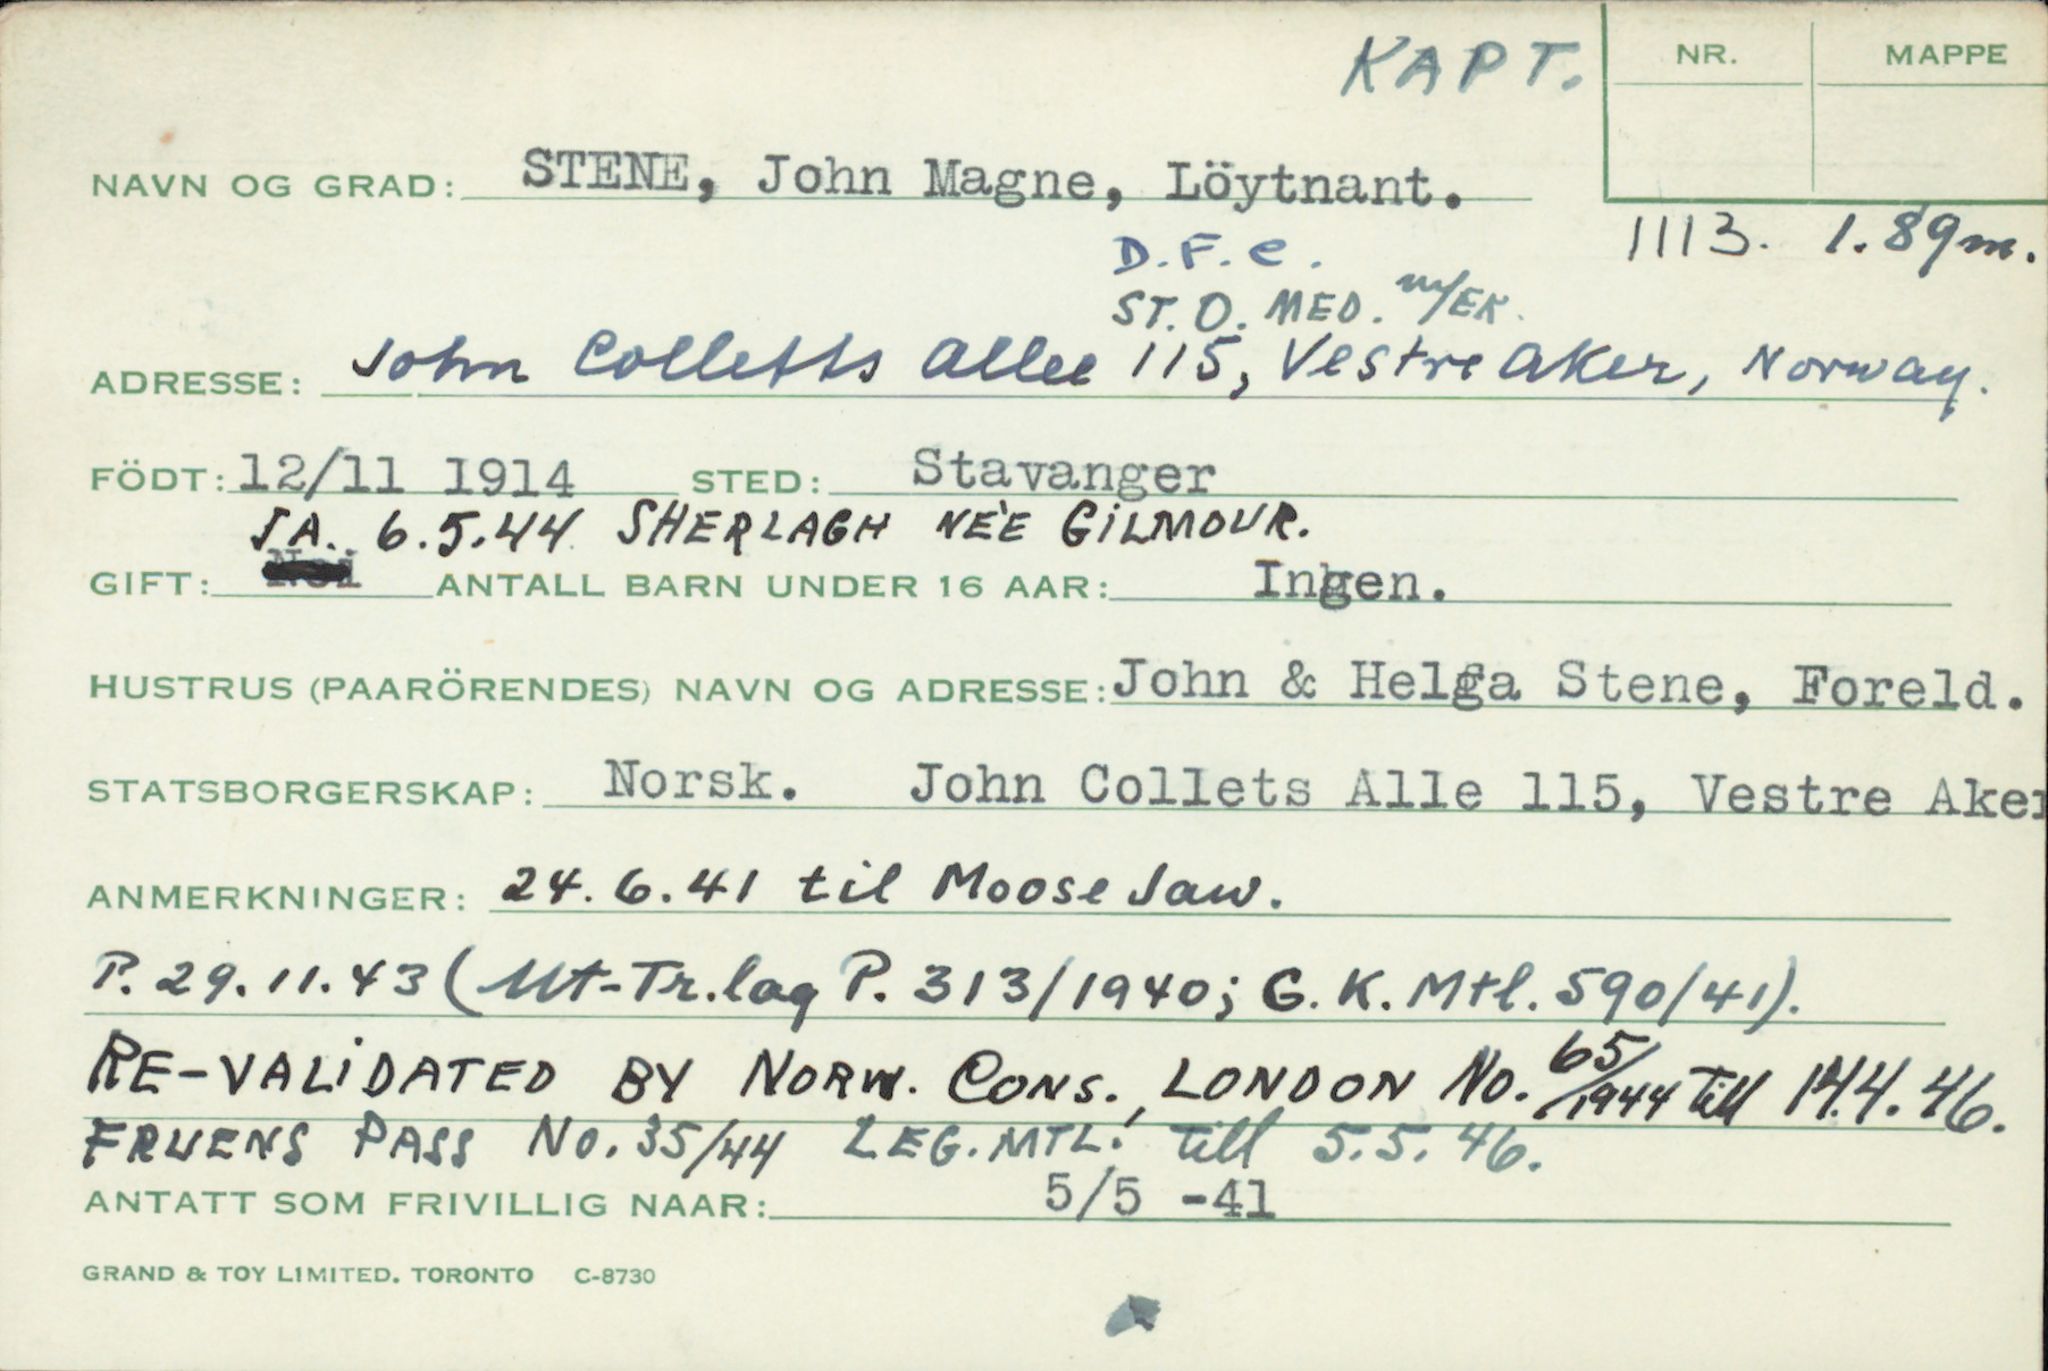 KAPT.
NR. MAPPE
NAVN OG GRAD: STENE, John Magne, Löytnant.
1113. 1.89m.
D.F.C.
ST. O. MED. m/EK.
ADRESSE: John Colletts Allee 115, Vestre Aker, Norway.
FÖDT: 12/11 1914 STED: Stavanger
JA. 6.5.44 SHERLAGH NÉE GILMOUR.
GIFT: Nei ANTALL BARN UNDER 16 AAR: Ingen.
HUSTRUS (PAARÖRENDES) NAVN OG ADRESSE: John & Helga Stene, Foreld.
STATSBORGERSKAP: Norsk. John Collets Alle 115, Vestre Aker
ANMERKNINGER: 24.6.41 til Moose Jaw.
P. 29.11.43 (Ut-Tr.lag P. 313/1940; G.K. Mtl. 590/41).
RE-VALIDATED BY NORW. CONS., LONDON No. 65/1944 till 14.4.46.
FRUENS PASS No. 35/44 LEG. MTL. till 5.5.46.
ANTATT SOM FRIVILLIG NAAR: 5/5 -41
GRAND & TOY LIMITED. TORONTO C-8730